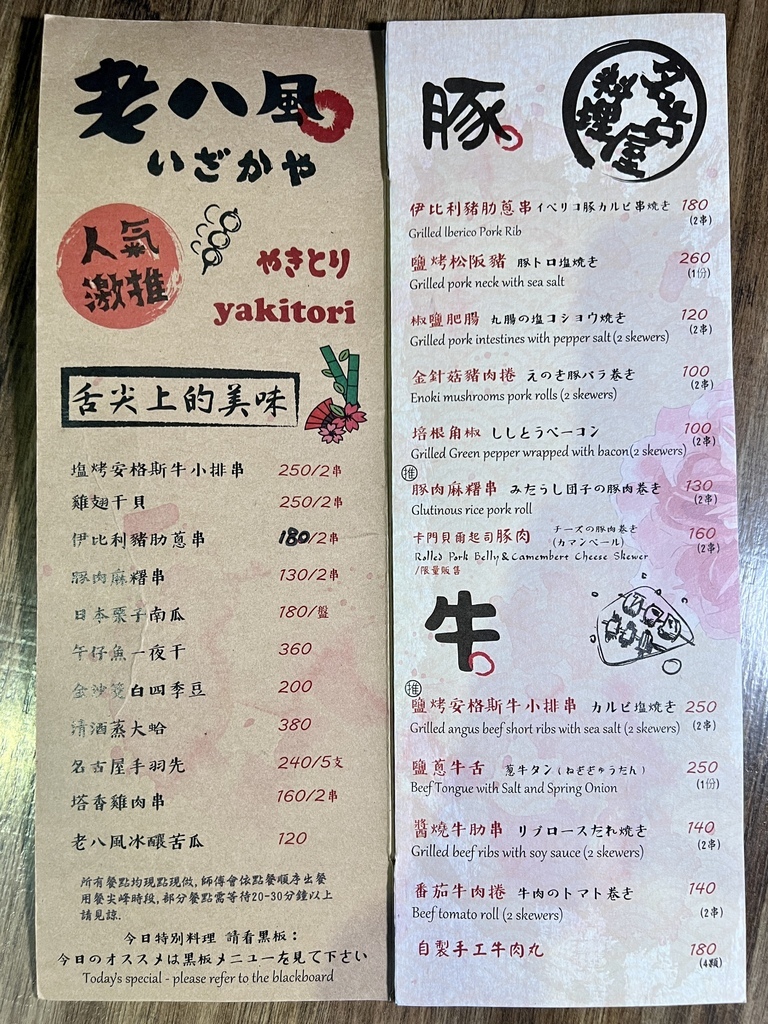 老八風
いざかや
人氣
激推
やきとり
yakitori
舌尖上的美味
塩烤安格斯牛小排串 250/2串
雞翅干貝 250/2串
伊比利豬肋蔥串 180/2串
豚肉麻糬串 130/2串
日本栗子南瓜 180/盤
午仔魚一夜干 360
金沙筊白四季豆 200
清酒蒸大蛤 380
名古屋手羽先 240/5支
塔香雞肉串 160/2串
老八風冰釀苦瓜 120
所有餐點均現點現做,師傅會依點餐順序出餐
用餐尖峰時段,部分餐點需等待20-30分鐘以上
請見諒.
今日特別料理 請看黑板：
今日のオススメは黒板メニューを見て下さい
Today's special - please refer to the blackboard
豚
名古屋
料理
伊比利豬肋蔥串 イベリコ豚カルビ串焼き 180
Grilled lberico Pork Rib (2串)
鹽烤松阪豬 豚トロ塩焼き 260
Grilled pork neck with sea salt (1份)
椒鹽肥腸 丸腸の塩コショウ焼き 120
Grilled pork intestines with pepper salt (2 skewers) (2串)
金針菇豬肉捲 えのき豚バラ巻き 100
Enoki mushrooms pork rolls (2 skewers) (2串)
培根角椒 ししとうベーコン 100
Grilled Green pepper wrapped with bacon(2 skewers) (2串)
推
豚肉麻糬串 みたらし団子の豚肉巻き 130
Glutinous rice pork roll (2串)
卡門貝爾起司豚肉 チーズの豚肉巻き (カマンベール) 160
Rolled Pork Belly & Camembert Cheese Skewer (2串)
/限量販售
牛
推
鹽烤安格斯牛小排串 カルビ塩焼き 250
Grilled angus beef short ribs with sea salt (2 skewers) (2串)
鹽蔥牛舌 葱牛タン (ねぎぎゅうたん) 250
Beef Tongue with Salt and Spring Onion (1份)
醬燒牛肋串 リブロースたれ焼き 140
Grilled beef ribs with soy sauce (2 skewers) (2串)
番茄牛肉捲 牛肉のトマト巻き 140
Beef tomato roll (2 skewers) (2串)
自製手工牛肉丸 180
(4顆)